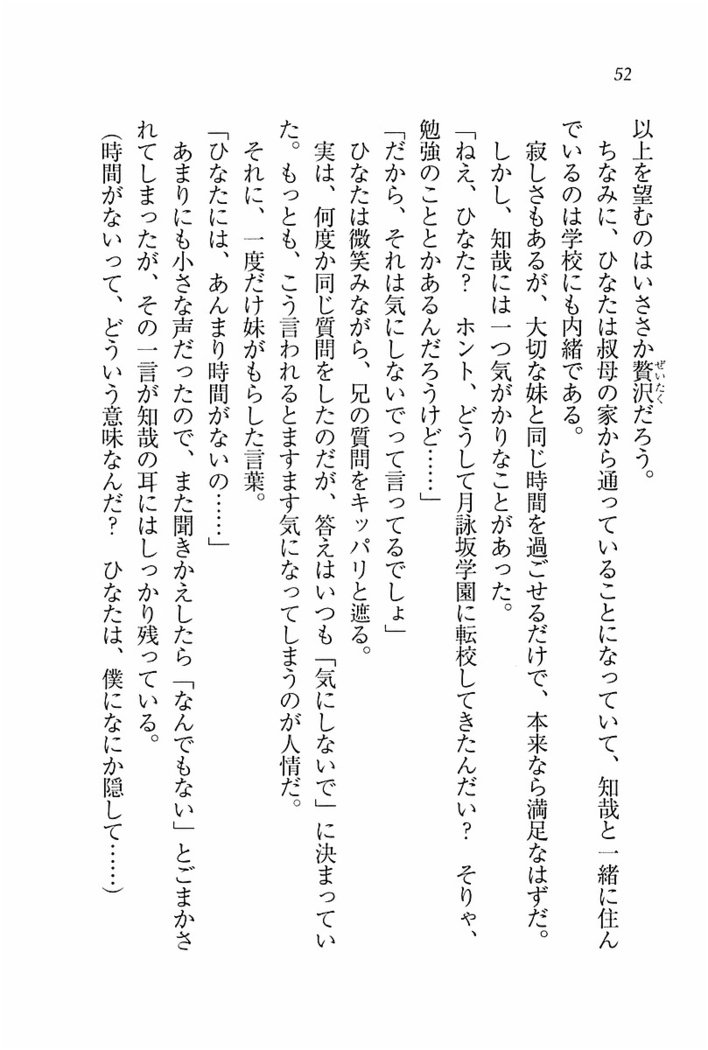 52
以上を望むのはいささか贅沢だろう。
ぜいたく
ちなみに、ひなたは叔母の家から通っていることになっていて、知哉と一緒に住ん
でいるのは学校にも内緒である。
寂しさもあるが、大切な妹と同じ時間を過ごせるだけで、本来なら満足なはずだ。
しかし、知哉には一つ気がかりなことがあった。
「ねえ、ひなた？　ホント、どうして月詠坂学園に転校してきたんだい？　そりゃ、
勉強のこととかあるんだろうけど……」
「だから、それは気にしないでって言ってるでしょ」
ひなたは微笑みながら、兄の質問をキッパリと遮る。
実は、何度か同じ質問をしたのだが、答えはいつも「気にしないで」に決まってい
た。もっとも、こう言われるとますます気になってしまうのが人情だ。
それに、一度だけ妹がもらした言葉。
「ひなたには、あんまり時間がないの……」
あまりにも小さな声だったので、また聞きかえしたら「なんでもない」とごまかさ
れてしまったが、その一言が知哉の耳にはしっかり残っている。
（時間がないって、どういう意味なんだ？　ひなたは、僕になにか隠して……）